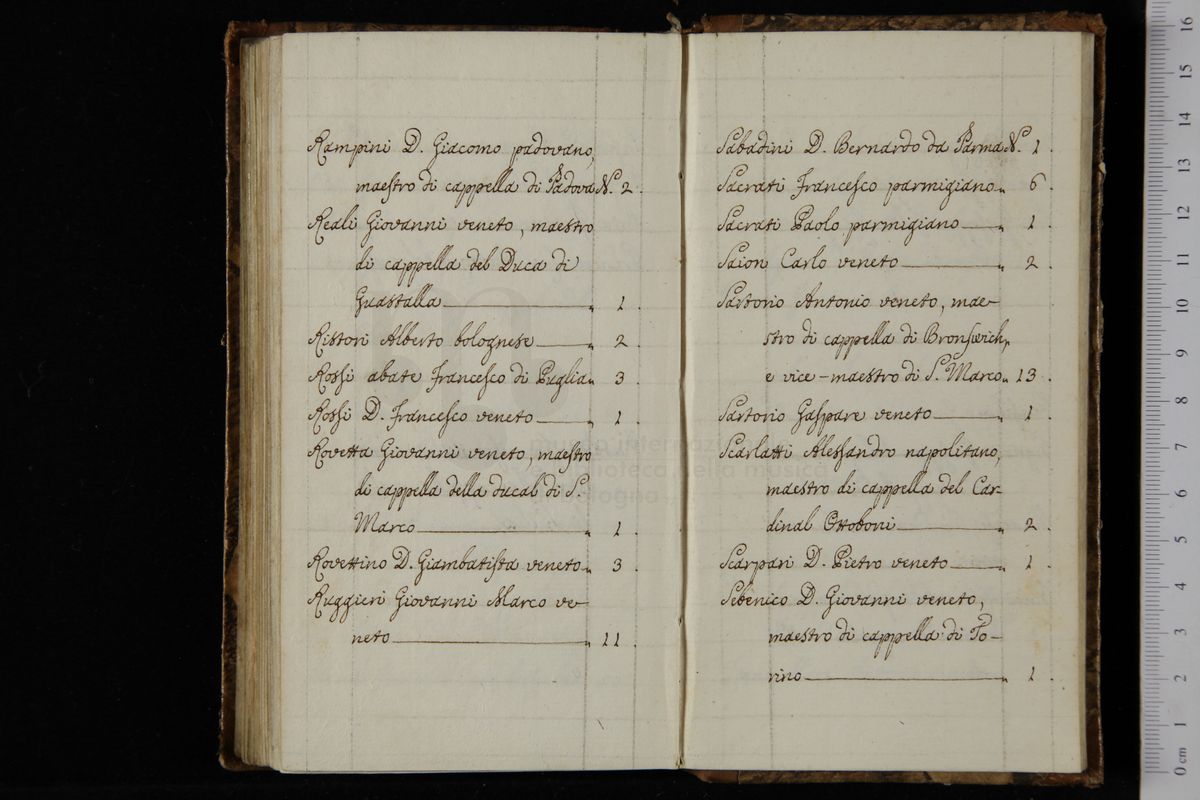 Rampini D. Giacomo padovano,
maestro di cappella di Padova N. 2.
Reali Giovanni veneto, maestro
di cappella del Duca di
Guastalla „ 1.
Ristori Alberto bolognese „ 2.
Rossi abate Francesco di Puglia „ 3
Rossi D. Francesco veneto „ 1.
Rovetta Giovanni veneto, maestro
di cappella della ducal di S.
Marco „ 1.
Rovettino D. Giambatista veneto „ 3.
Ruggieri Giovanni Marco ve-
neto „ 11.
Sabadini D. Bernardo da Parma N. 1.
Sacrati Francesco parmigiano „ 6.
Sacrati Paolo parmigiano „ 1.
Saion Carlo veneto „ 2.
Sartorio Antonio veneto, mae-
stro di cappella di Bronswich,
e vice-maestro di S. Marco „ 13.
Sartorio Gaspare veneto „ 1.
Scarlatti Alessandro napolitano,
maestro di cappella del Car-
dinal Ottoboni „ 2.
Scarpari D. Pietro veneto „ 1.
Sebenico D. Giovanni veneto,
maestro di cappella di To-
rino „ 1.
museo internazionale
e biblioteca della musica
di bologna
0 cm 1 2 3 4 5 6 7 8 9 10 11 12 13 14 15 16